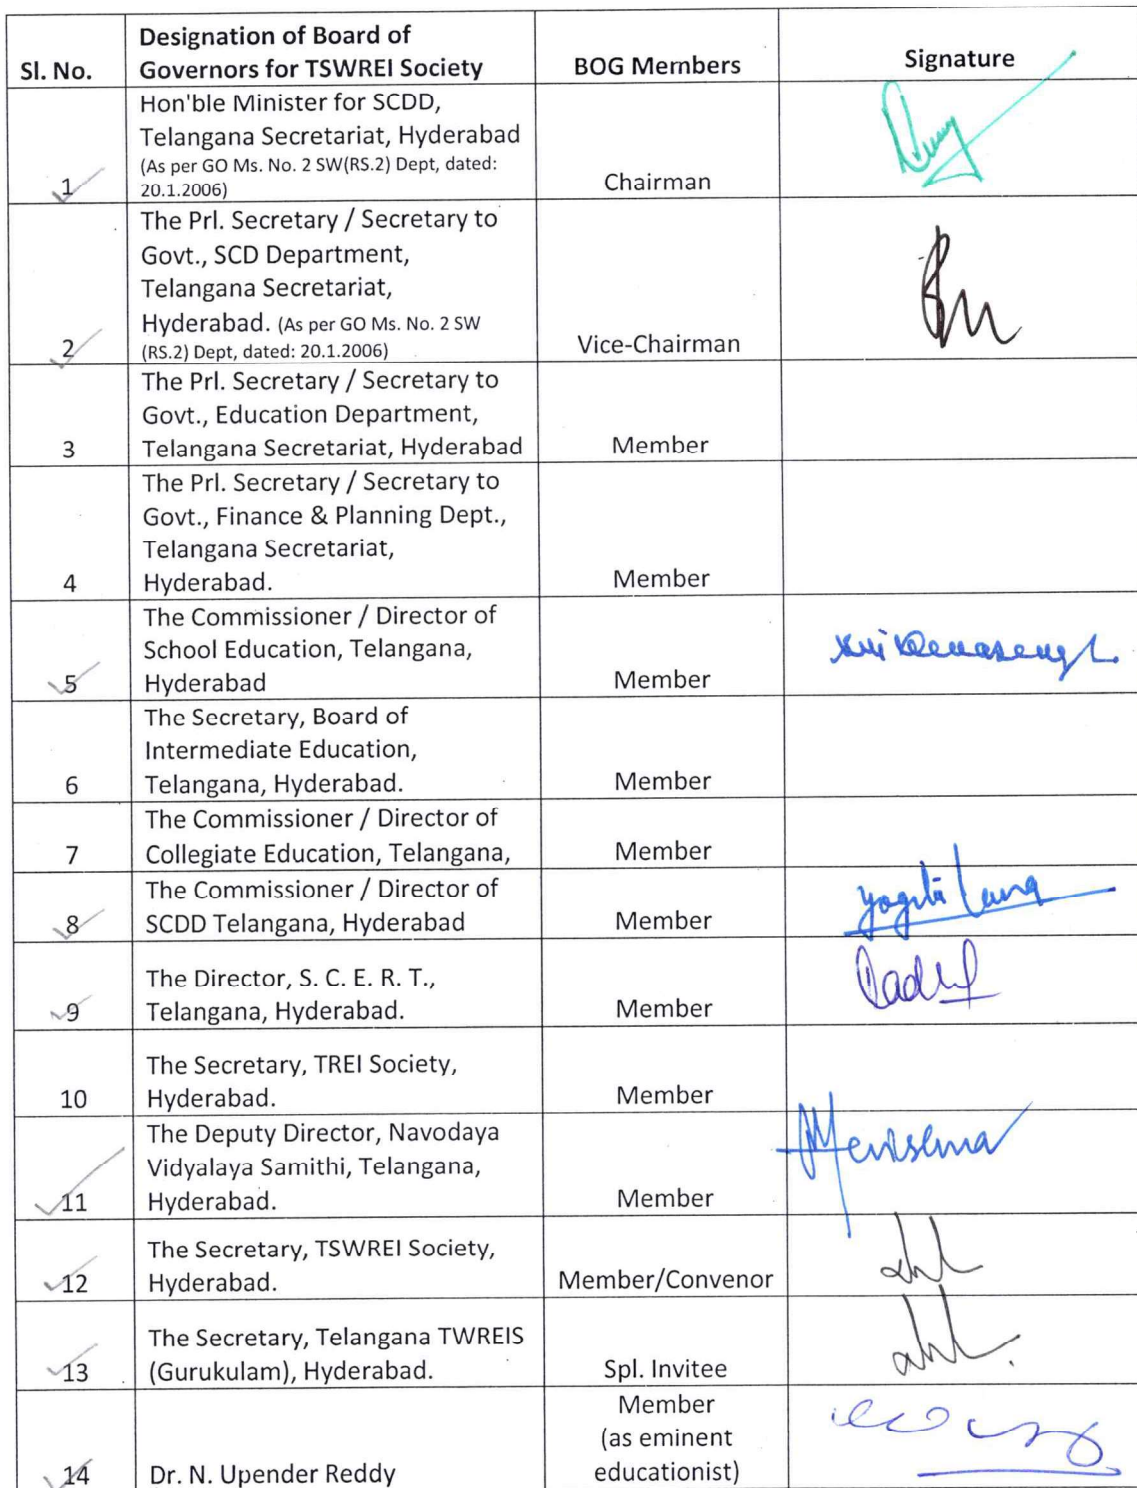 Sl. No.
Designation of Board of
Governors for TSWREI Society
BOG Members
Signature
1
Hon'ble Minister for SCDD,
Telangana Secretariat, Hyderabad
(As per GO Ms. No. 2 SW(RS.2) Dept, dated:
20.1.2006)
Chairman
2
The Prl. Secretary / Secretary to
Govt., SCD Department,
Telangana Secretariat,
Hyderabad. (As per GO Ms. No. 2 SW
(RS.2) Dept, dated: 20.1.2006)
Vice-Chairman
3
The Prl. Secretary / Secretary to
Govt., Education Department,
Telangana Secretariat, Hyderabad
Member
4
The Prl. Secretary / Secretary to
Govt., Finance & Planning Dept.,
Telangana Secretariat,
Hyderabad.
Member
5
The Commissioner / Director of
School Education, Telangana,
Hyderabad
Member
6
The Secretary, Board of
Intermediate Education,
Telangana, Hyderabad.
Member
7
The Commissioner / Director of
Collegiate Education, Telangana,
Member
8
The Commissioner / Director of
SCDD Telangana, Hyderabad
Member
9
The Director, S. C. E. R. T.,
Telangana, Hyderabad.
Member
10
The Secretary, TREI Society,
Hyderabad.
Member
11
The Deputy Director, Navodaya
Vidyalaya Samithi, Telangana,
Hyderabad.
Member
12
The Secretary, TSWREI Society,
Hyderabad.
Member/Convenor
13
The Secretary, Telangana TWREIS
(Gurukulam), Hyderabad.
Spl. Invitee
14
Dr. N. Upender Reddy
Member
(as eminent
educationist)